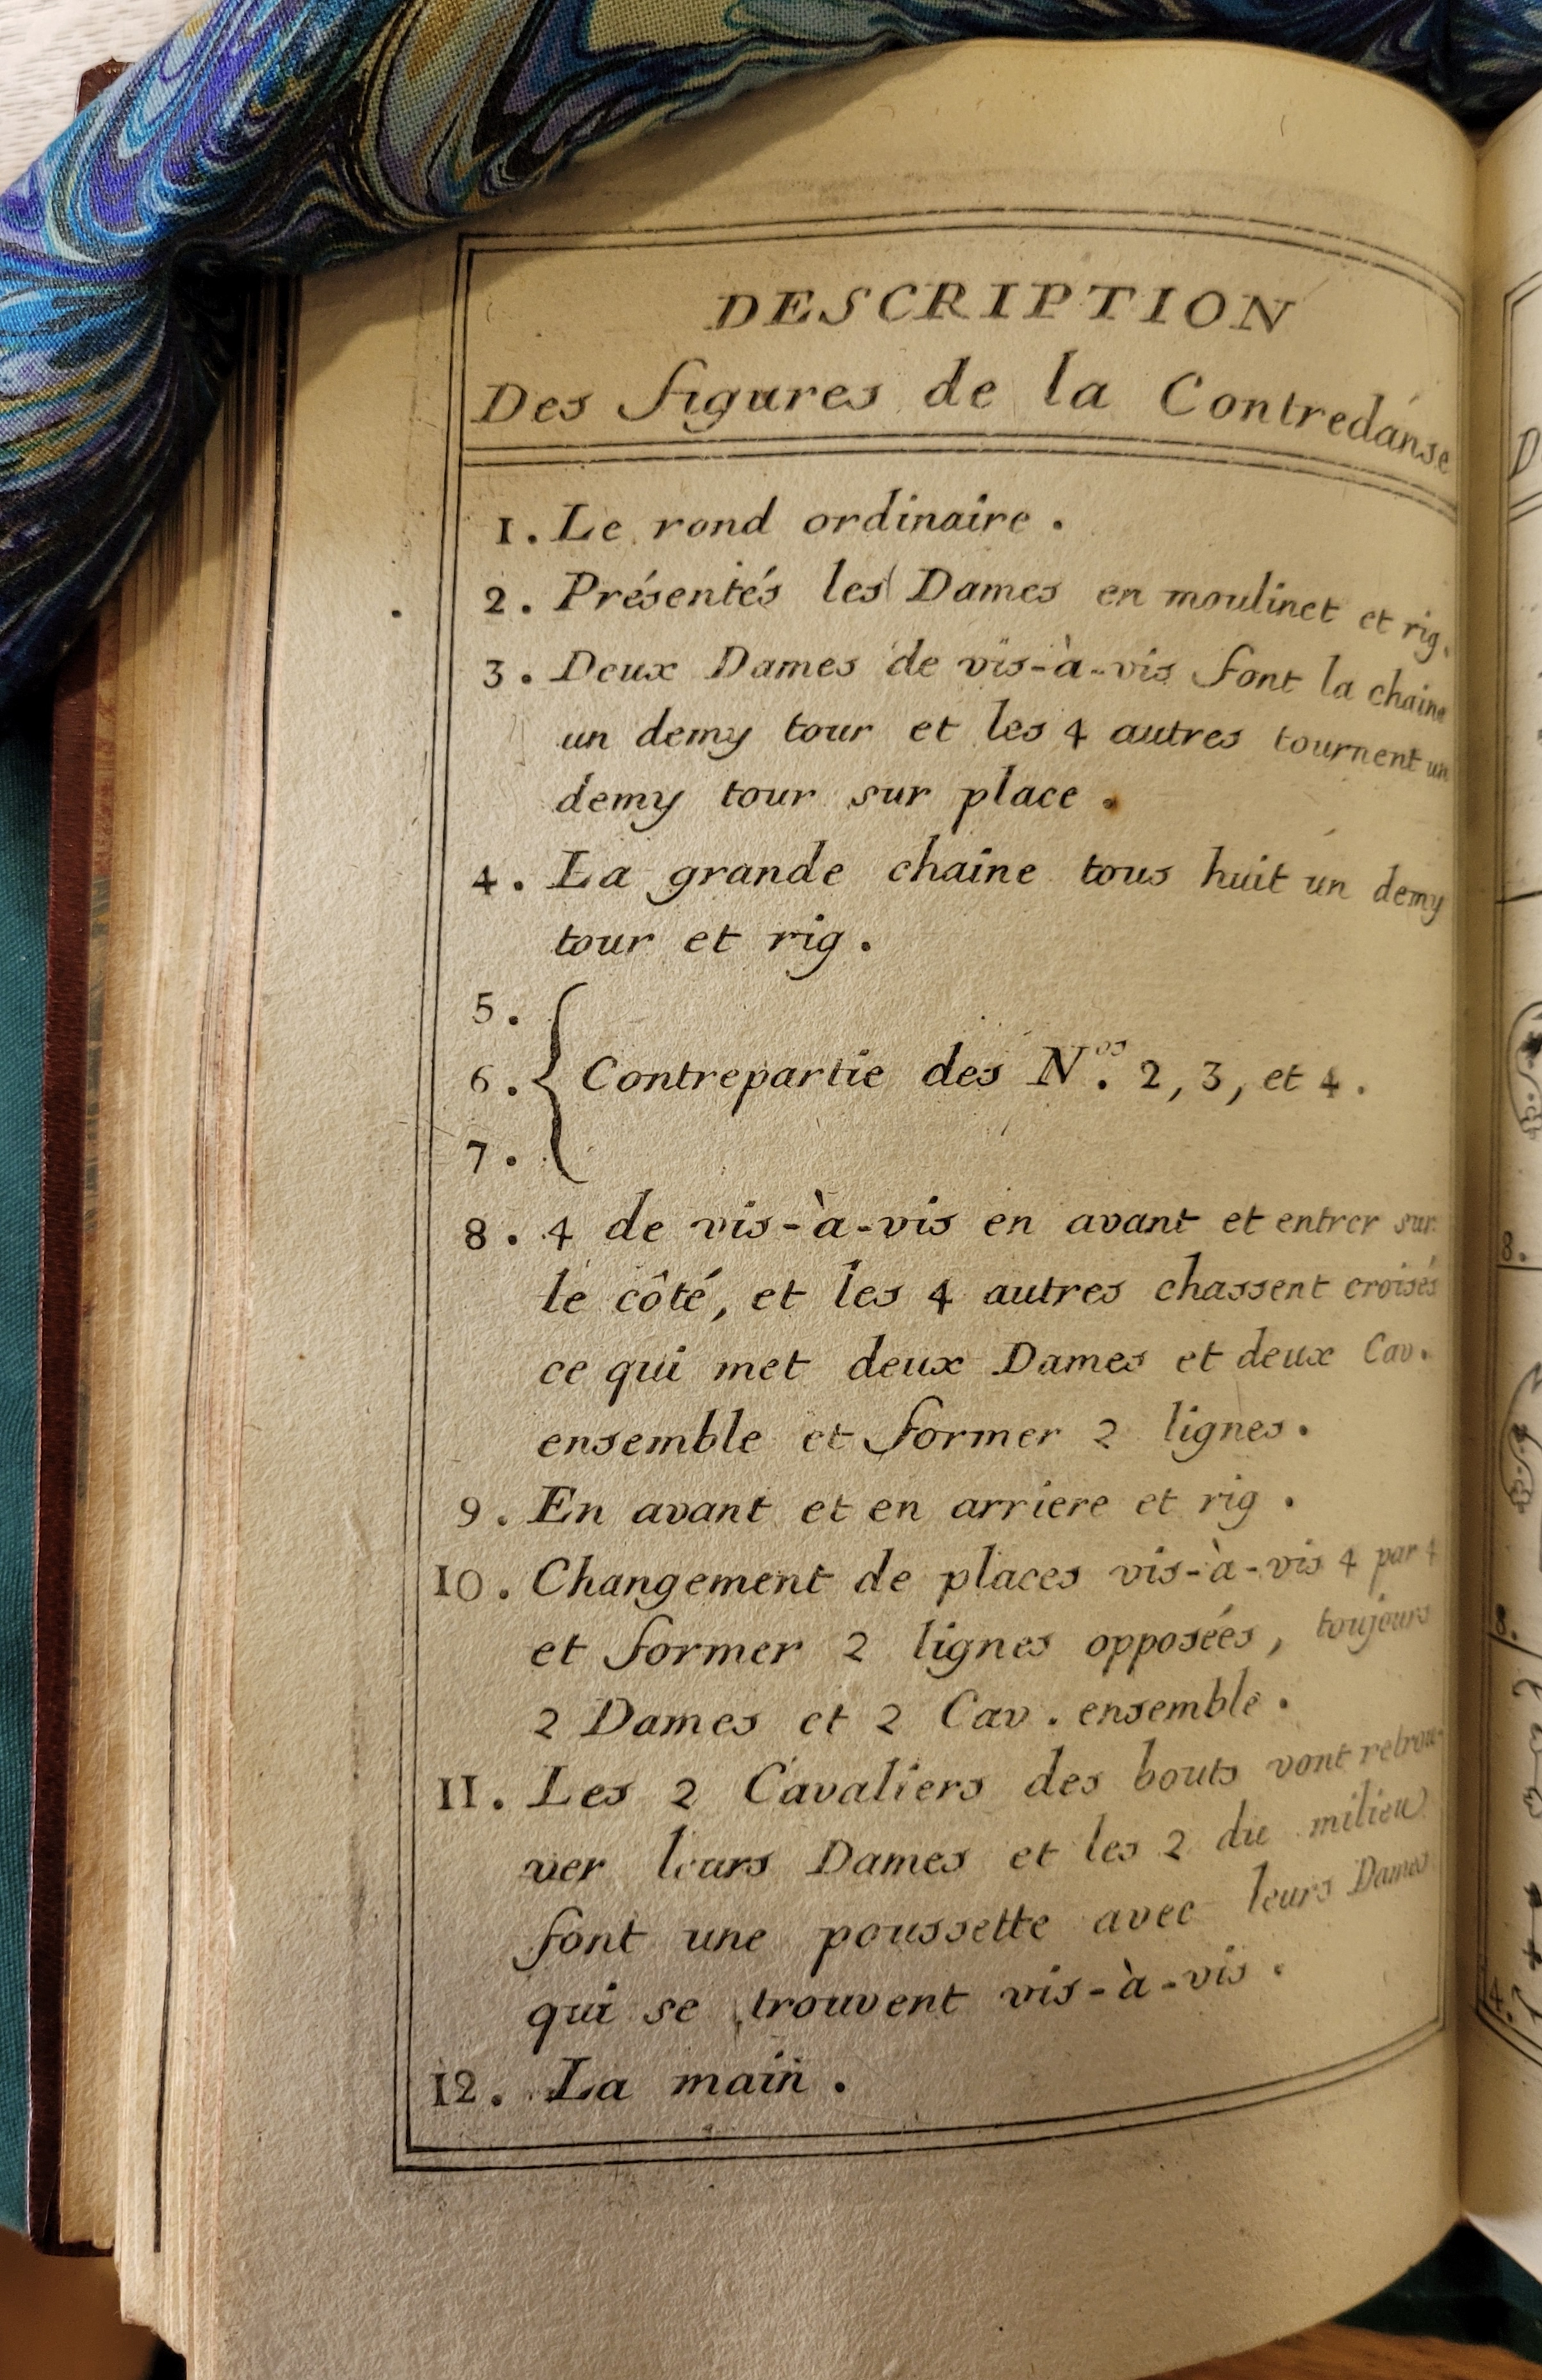 DESCRIPTION
Des figures de la Contredanse
1. Le rond ordinaire.
2. Présentés les Dames en moulinet et rig.
3. Deux Dames de vis-à-vis font la chaine
un demy tour et les 4 autres tournent un
demy tour sur place.
4. La grande chaine tous huit un demy
tour et rig.
5.
6. { Contrepartie des N.os 2, 3, et 4.
7.
8. 4 de vis-à-vis en avant et entrer sur
le côté, et les 4 autres chassent croisés
ce qui met deux Dames et deux Cav.
ensemble et former 2 lignes.
9. En avant et en arriere et rig.
10. Changement de places vis-à-vis 4 par 4
et former 2 lignes opposées, toujours
2 Dames et 2 Cav. ensemble.
11. Les 2 Cavaliers des bouts vont retrou-
ver leurs Dames et les 2 du milieu
font une poussette avec leurs Dames
qui se trouvent vis-à-vis.
12. La main.
D
8.
8.
4.